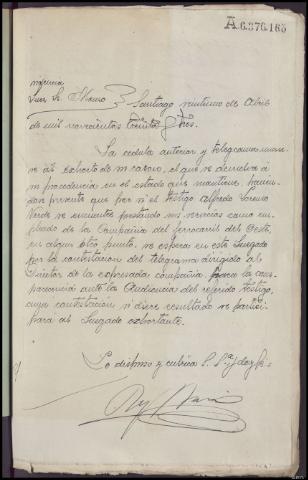 A.6.376.163
Providencia
Juez Sr. Santiago veintiuno de Abril
de mil novecientos treinta y tres.
La cedula anterior y telegrama unanse
al exhorto de su razon, el que se devolverá a
su procedencia en el estado que mantiene, hacien-
dose presente que por si el testigo Alfredo Lorenzo
Verde se encuentra prestando sus servicios como em-
pleado de la Compañia del ferrocarril del Oeste,
en algun otro punto, se espera en este Juzgado
por la contestacion del telegrama dirigido al
Director de la expresada compañia para la com-
parecencia ante la Audiencia del referido testigo,
cuya contestación si diere resultado se partici-
pará al Juzgado exhortante.
Lo dispuso y rubrica S. Sª, doy fé.